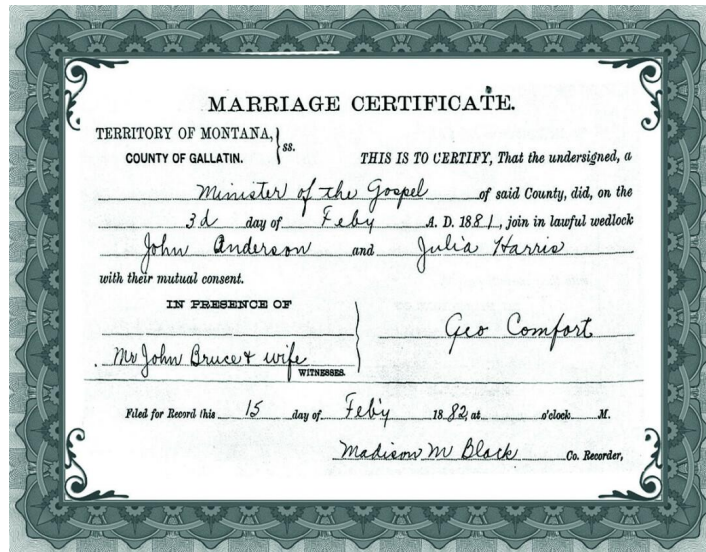 MARRIAGE CERTIFICATE.
TERRITORY OF MONTANA,
COUNTY OF GALLATIN.
ss.
THIS IS TO CERTIFY, That the undersigned, a
Minister of the Gospel of said County, did, on the
3d day of Feby A. D. 1881, join in lawful wedlock
John Anderson and Julia Harris
with their mutual consent.
IN PRESENCE OF
Geo Comfort
Mr John Bruce & wife
WITNESSES.
Filed for Record this 15 day of Feb'y 1882, at o'clock M.
Madison M Black Co. Recorder,